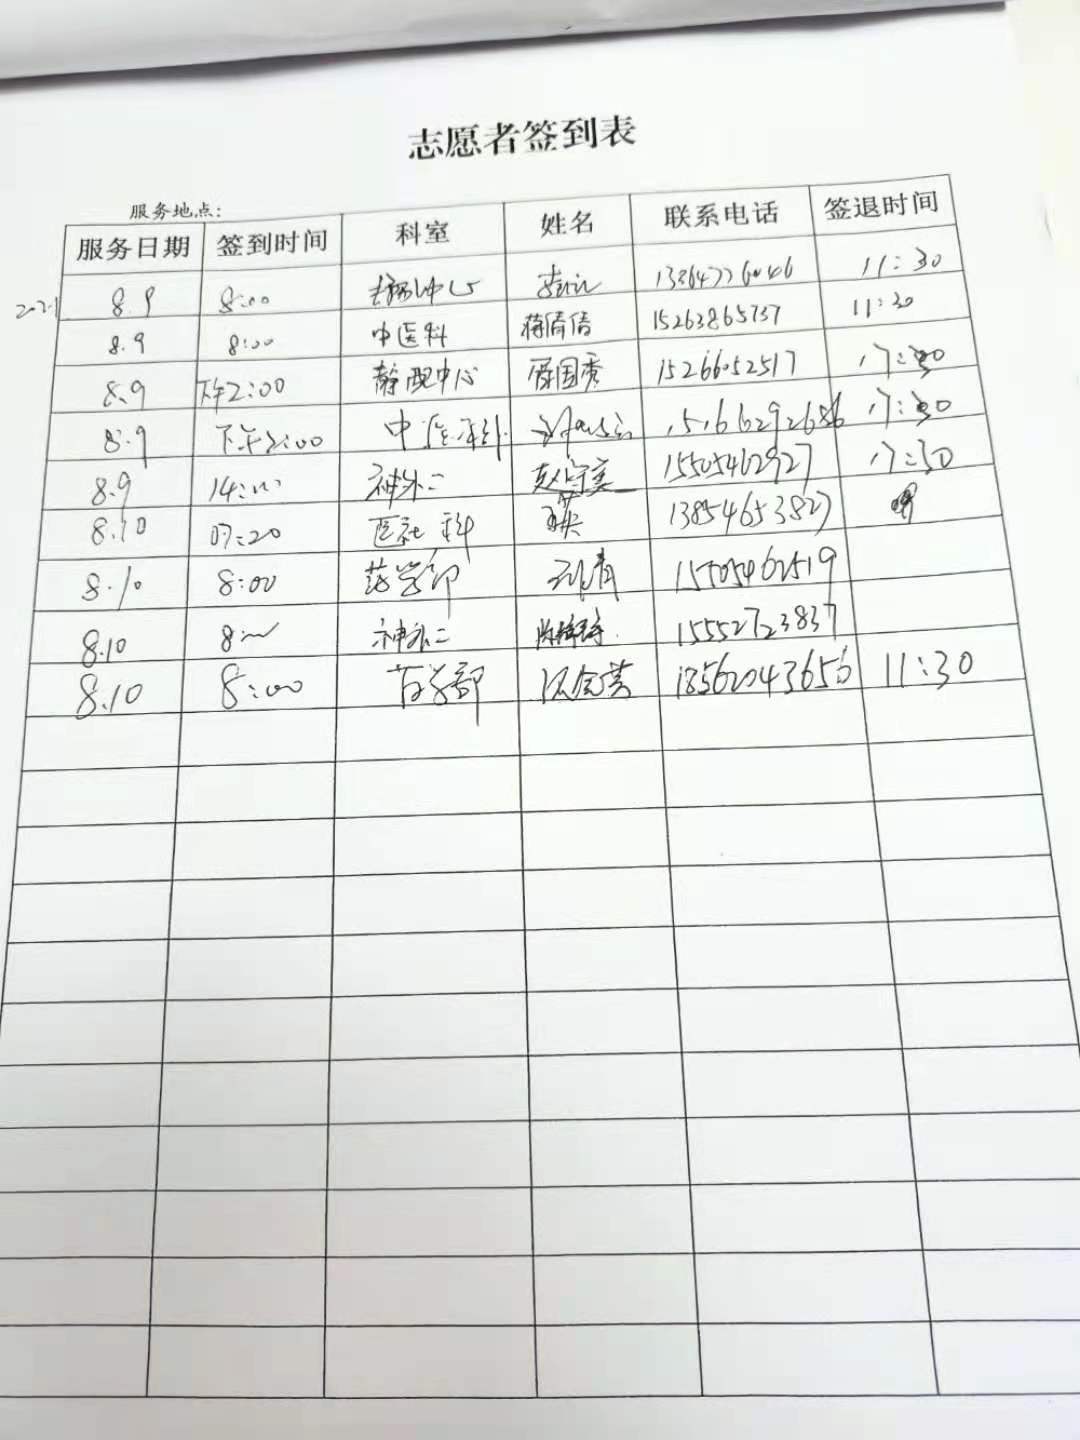 志愿者签到表
服务地点:
服务日期 签到时间 科室 姓名 联系电话 签退时间
2021 8.9 8:00 11:30
8.9 8:00 中医科 蒋倩倩 15263865737 11:30
8.9 下午2:00 静配中心 国秀 15266052517 17:30
8.9 下午2:00 15166292686 17:30
8.9 14:00 神外二 15505462927 17:30
8.10 07:20 医社科 13854653827
8.10 8:00 药学部 青 15505462519
8.10 8:00 神外二 15552723837
8.10 8:00 药学部 18562043656 11:30